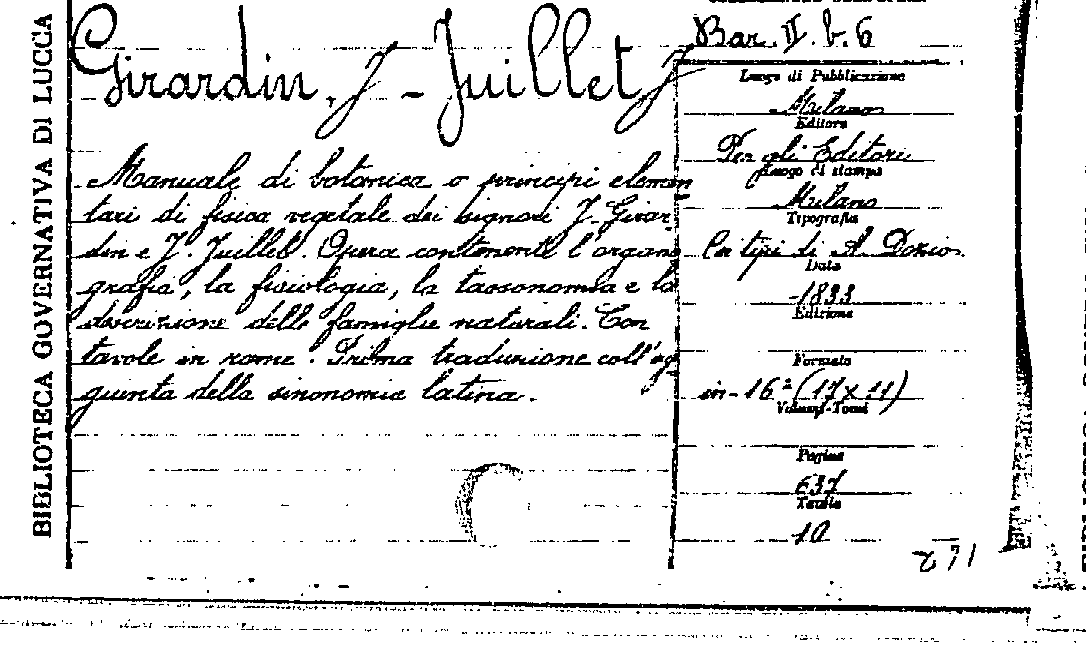 BIBLIOTECA GOVERNATIVA DI LUCCA
Girardin, J - Juillet J
Manuale di botanica o principi elemen
tari di fisica vegetale dei signori J. Girar-
din e J. Juillet. Opera contenente l'organo
grafia, la fisiologia, la tassonomia e la
descrizione delle famiglie naturali. Con
tavole in rame. Prima traduzione coll'ag
giunta della sinonomia latina.
Bar. II. b. 6
Luogo di Pubblicazione
Milano
Editore
Per gli Editori
Luogo di stampa
Milano
Tipografia
Co tipi di A. Dozio
Data
1833
Edizione
Formato
in-16° (17 x 11)
Volumi-Tomi
Pagine
637
Tavole
10
271